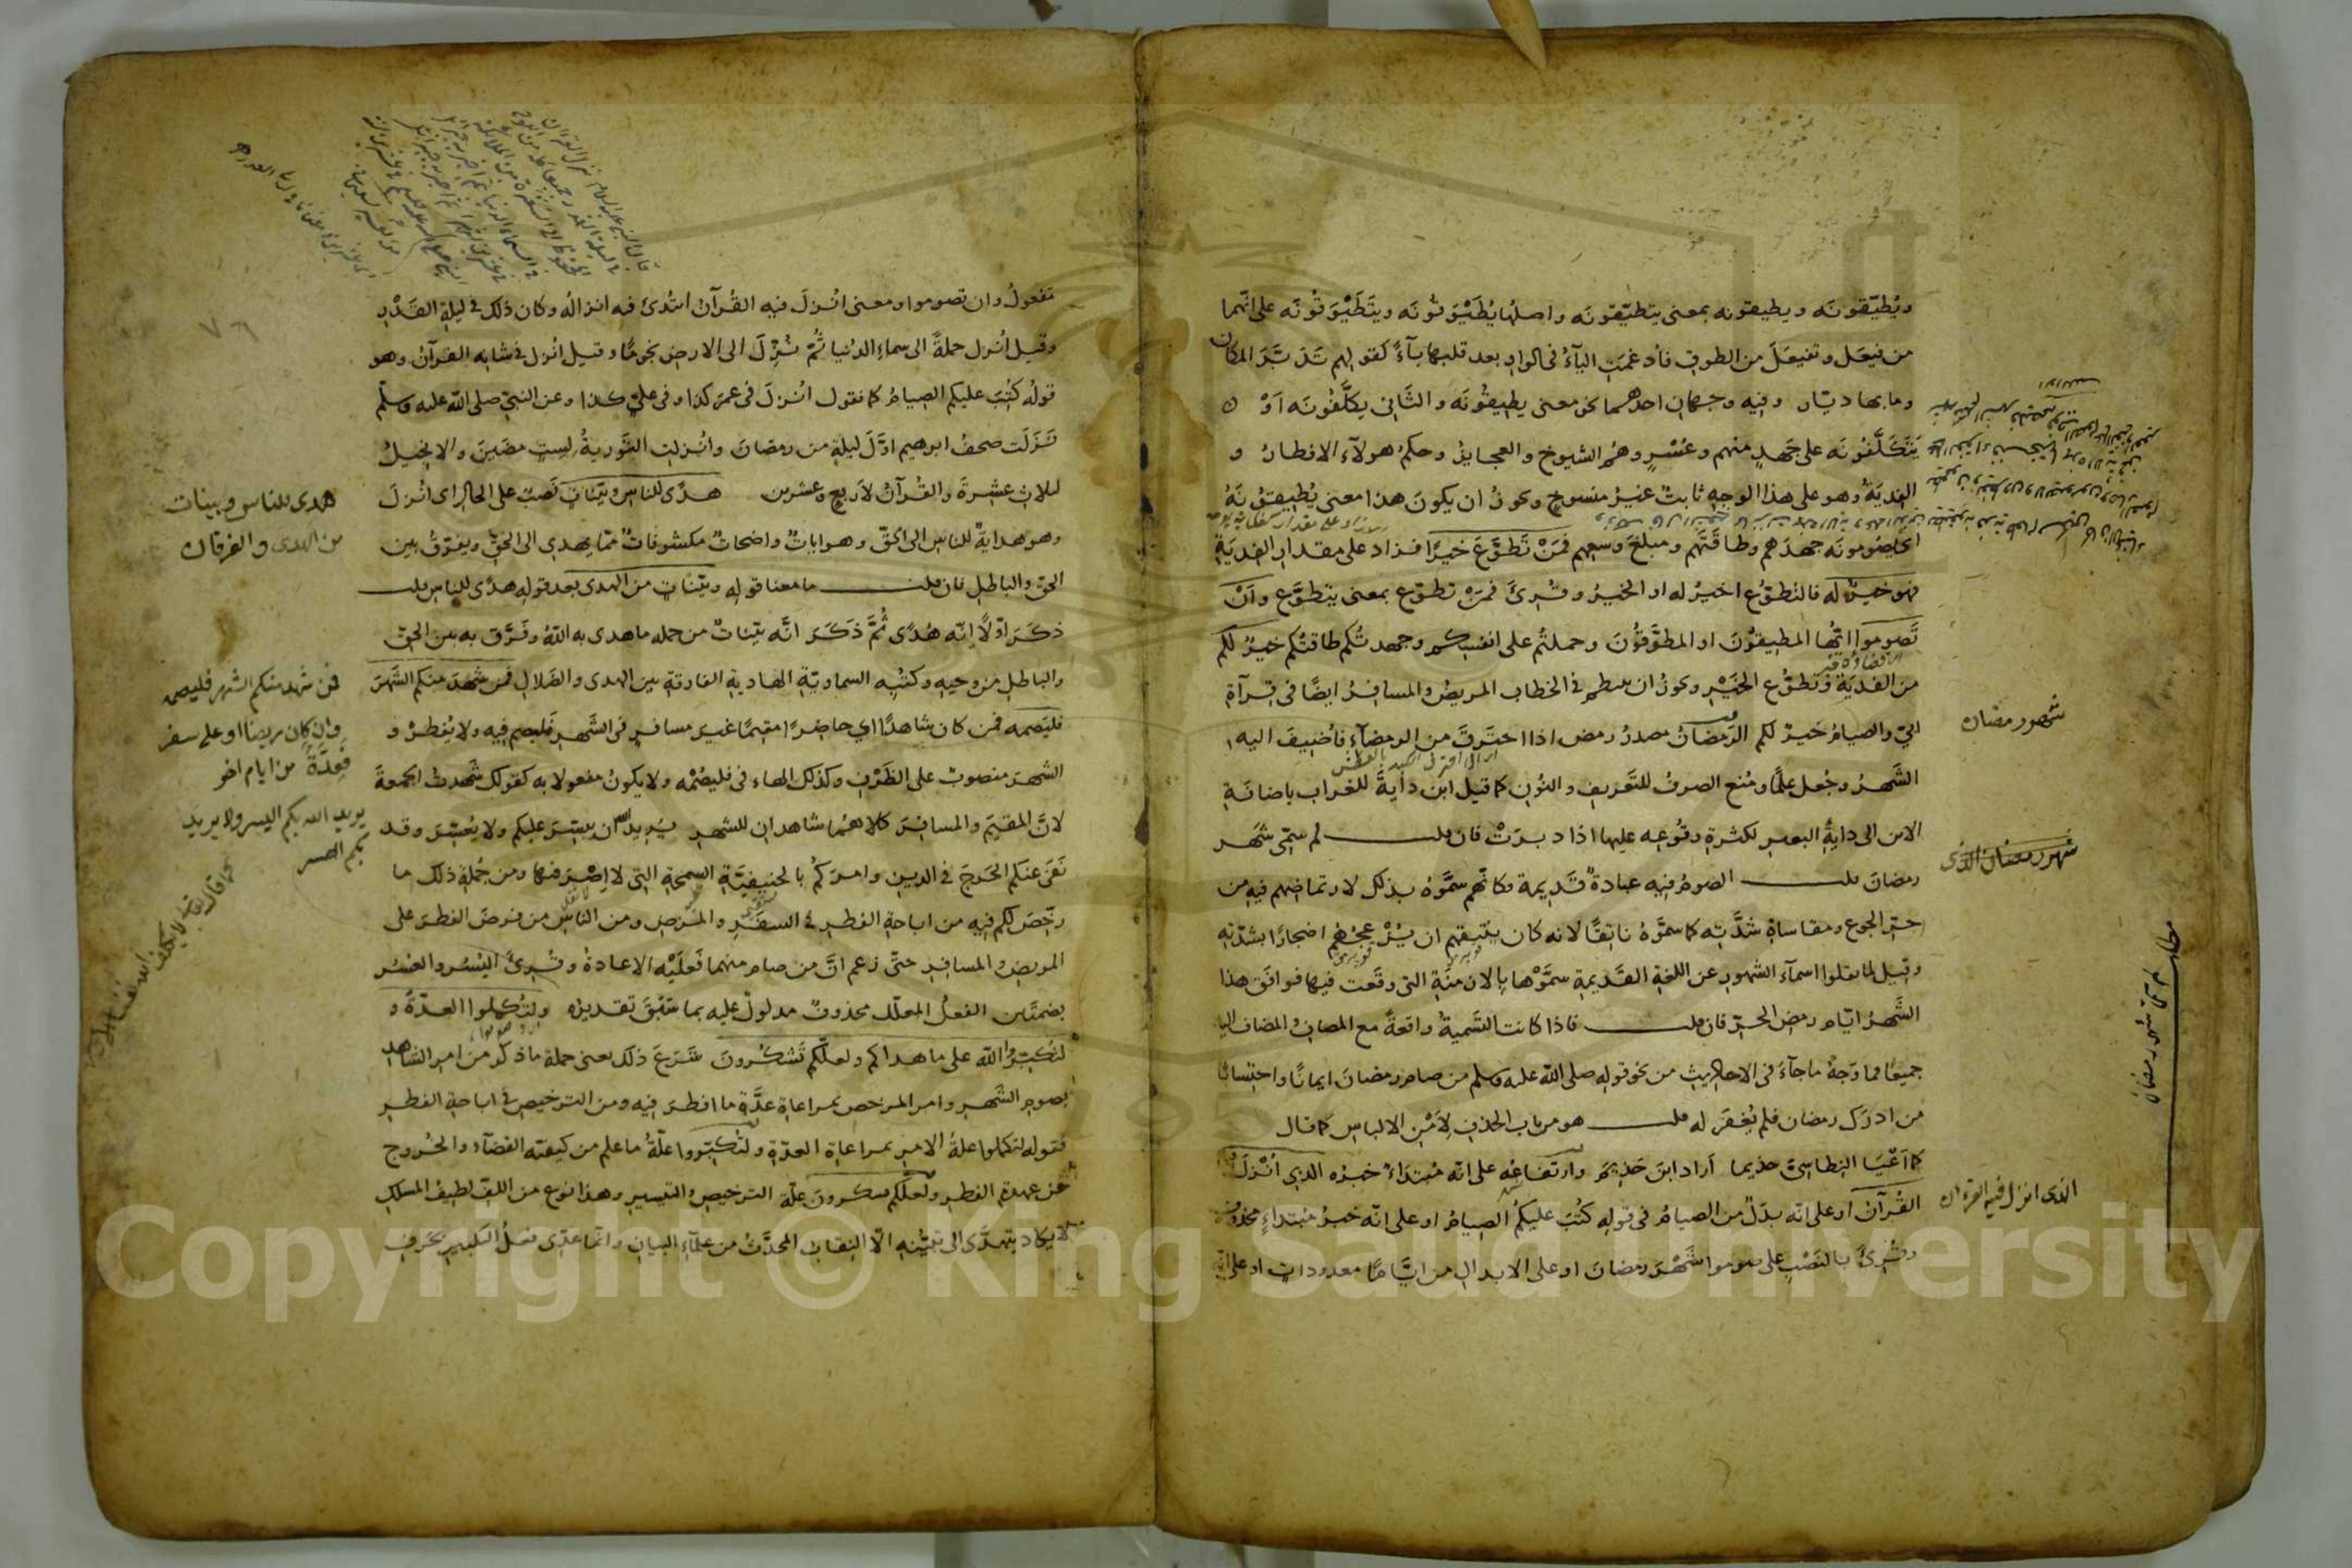 ويُطيّقونَه ويطيقونه بمعنى يتطيّقونَه واصلهما يُطَيْوَقُونَه ويتَطَيْوَقُونَه على انّهما
من فيعَل وتفيعَلَ من الطوق فاُدغمَت اليآءُ فى الواو بعد قلبها يآءً كقولهم تَدَيَّرَ المكان
وما بها ديّار وفيه وجهان احدهما نحو معنى يطيقُونَه والثّانى يكلَّفُونَه اَوْ
يَتَكَلَّفُونَه على جَهدٍ منهم وعُسْرٍ وهُم الشيوخ والعجايز وحكم هولآء الافطارُ و
الفِديَةُ وهو على هذا الوجه ثابتٌ غيرُ منسوخٍ ويجوزُ ان يكونَ هذا معنى يُطيقونَهُ
اى يصُومونَه جهدَهم وطاقَتَهم ومبلغَ وسعهم فمَنْ تَطوَّعَ خيرًا فزاد على مقدار الفديَةِ
فهو خيرٌ له فالتطوّع اخيرُ له او الخيرُ وقُرِئَ فمن تطوّع بمعنى يتطوَّع وأَنْ
تَصوموا ايّها المطيقُونَ او المطوَّقُونَ وحملتُم على انفسكم وجهدتُكم طاقتُكم خيرٌ لكم
من الفديَة وتطوُّع الخَيْرِ ويجوزُ ان ينتظم فى الخطاب المريضُ والمسافرُ ايضًا فى قرآة
ابيّ والصيامُ خيرٌ لكم الرّمضانُ مصدرُ رمض اذا احترقَ من الرمضآءِ فاُضيفَ اليه
الشَّهرُ وجُعل علمًا ومُنع الصرفُ للتَّعريف والنُون كما قيل ابن دأيةَ للغراب باضافَةِ
الابن الى دايةِ البعير لكثرة وقُوعِه عليها اذا دبرَتْ فان قلت لم سمّى شَهر
رمضان قلت الصومُ فيه عبادةٌ قَديمة فكانّهم سمَّوهُ بذلك لارتماضهم فيه من
حرّ الجوع ومقاساة شدَّتِه كما سمَّوهُ ناتقًا لانه كان ينتقهم ان يُزْعجُهُم اضجارًا بشدّتِه
وقيل لما نقلوا اسمآء الشهور عن اللغة القَديمةِ سمَّوْها بالازمنَةِ التى وقَعت فيها فوافَق هذا
الشَّهرُ ايّام رمضِ الحرّ فان قلت فاذا كانت التّسَميةُ واقعةً مع المضاف والمضاف اليه
جميعًا فما وَجهُ ماجآءَ فى الاحاديث من نحو قوله صلى الله عليه وسلم من صام رمضانَ ايمانًا واحتِسابًا
من ادرَك رمضان فلم يُغفر له قلت هو من باب الحذف لاَمْنِ الالباس كما قال
كما اَعْيَا النِطاسىَّ حذيما اَراد ابنَ حَذيم وارتفاعُه على انّه مُبتدَاءٌ خبرُه الذى اُنْزلَ فيه
القُرآنُ او على انّه بدَلٌ من الصيامُ فى قوله كُتِبَ عليكُم الصيامُ او على انّه خبرُ مُبتداءٍ محذوف
وقُرِئَ بالنَصْبِ على صوموا شَهْرَ رمضانَ او على الابدال من ايّامًا معدودات او على انّه
شهر رمضان
شهر رمضان الذى
الذى انزل فيه القرءان
تفعولُ وان تصوموا ومعنى اُنْزلَ فيه القُرآنُ ابتُدئ فيه انزالُه وكان ذلك فى ليلة القَدْر
وقيل اُنزل جملةً الى سماءِ الدُنيا ثُمّ نُزّلَ الى الارض نجومًا وقيل انزل فى شانه القرآنُ وهو
قولُه كُتِبَ عليكم الصيامُ كما نقول اُنزلَ فى عمر كذا وفى علىّ كذا وعن النبىّ صلى الله عليه وسلم
نَزَلَت صحفُ ابرهيم اوَّلَ ليلةٍ من رمضانَ واُنزلت التَّوريةُ لِستٍ مضَينَ والانجيلُ
لثلاث عَشرةَ والقُرآنُ لاَربعٍ وعشرين هدًى للناس وبيّناتٍ نَصبٌ على الحال اى اُنْزلَ
وهو هدايةٌ للناس الى الحقّ وهو اياتٌ واضحاتٌ مكشوفاتٌ ممّا يهدى الى الحقّ ويفرّقُ بين
الحقّ والباطل فان قلت ما معنا قوله وبيّناتٍ من الهدى بعد قوله هدًى للناس قلت
ذكَرَ اَوّلاً انّه هُدًى ثُمَّ ذَكَرَ انّه بيّناتٌ من جمله ما هدى به الله وفَرَّق به بين الحقّ
والباطلِ من وحيهِ وكتُبِه السماويّة الهادية الفارقةِ بين الهدى والضَلال فمن شهدَ منكم الشَّهرَ
فليَصمه فمن كان شاهدًا اي حاضرًا مقيمًا غيرَ مسافرٍ فى الشَّهر فليصم فيه ولا يُفطِرْ و
الشهرَ منصوبٌ على الظَرْفِ وكذلك الهاء فى فليصُمْه ولا يكونُ مفعولا به كقولك شَهدتُ الجمعةَ
لانَّ المقيمَ والمسافرَ كلاهُما شاهدان للشهر يُريد الله ان ييسّرَ عليكم ولا يُعسِّرَ وقد
نَفَى عنكم الحَرجَ فى الدين وامرَكُم بالحنيفيَّةِ السمحةِ التى لا اِصْرَ فيها ومن جُملةِ ذلك ما
رخّصَ لكم فيه من اباحةِ الفطر فى السفَر والمرَض ومن الناسِ من فرضَ الفطرَ على
المريضِ والمسافرِ حتّى زعم انَّ من صام منهما فَعلَيْه الاعادةُ وقُرئَ اليُسُر والعُسُر
بضمتَين الفعلُ المعلَّل محذوفٌ مدلولٌ عليه بما سَبَق تقديرُه ولتُكملوا العدّةَ و
لتُكبّرُوا اللّه على ما هداكم ولعلّكم تَشكُرونَ شَرَعَ ذلك يعنى جملةَ ما ذكر من امر الشاهد
بصوم الشَّهر وامر المرخص بمراعاة عدّة ما افطرَ فيه ومن الترخيص فى اباحة الفطر
فقوله لتكملوا علةُ الامر بمراعاة العدّة ولتُكبّروا علّةُ ما علم من كيفيّة القضآء والخُروج
عن عهدة الفطر ولعلّكم تشكرون علّة الترخيص والتيسير وهذا نوع من اللفّ لطيف المسلك
لا يكاد يتهدَّى الى تبيُّنه الّا النقابُ المحدّثُ من علمآءِ البيان وانّما عدّى فعلُ التكبير بحرف
هدى للناس وبينات
من الهدى والفرقان
فمن شهد منكم الشهر فليصمه
وان كان مريضا او على سفر
فعدّةٌ من ايام اخر
يريد الله بكم اليسر ولا يريد
بكم العسر
كما قال الله تعالى لا يكلف الله نفسا الا
Copyright © King Saud University